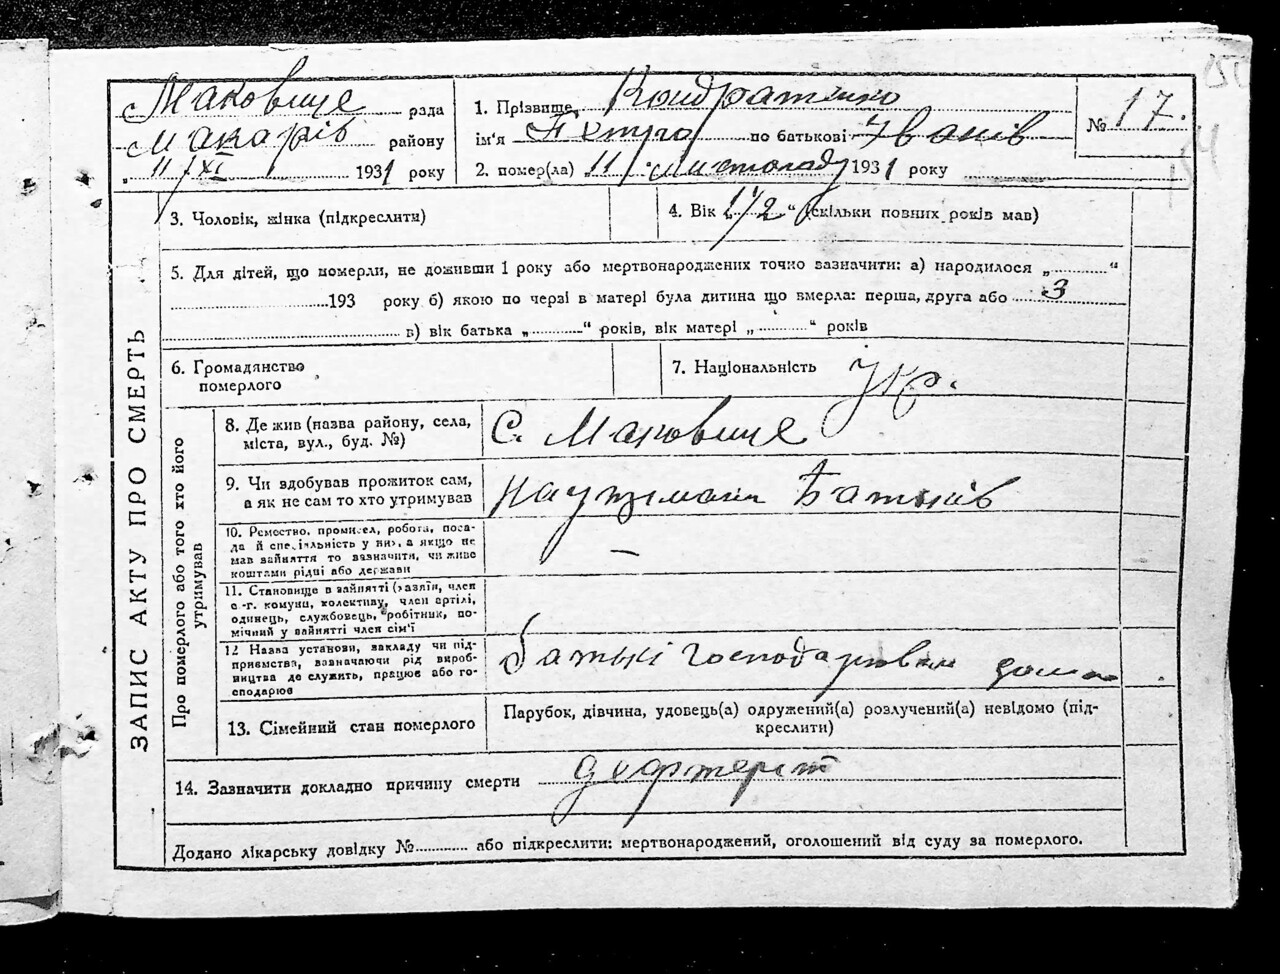 Маковище рада
Макарів району
„ 11/XI 1931 року
1. Прізвище Кондратенко
ім'я по батькові Іванів
2. помер(ла) „11" листопаду 1931 року
№ 17.
ЗАПИС АКТУ ПРО СМЕРТЬ
3. Чоловік, жінка (підкреслити)
4. Вік 1 1/2 " (скільки повних років мав)
5. Для дітей, що померли, не доживши 1 року або мертвонароджених точно зазначити: а) народилося „ "
193 року б) якою по черзі в матері була дитина що вмерла: перша, друга або 3
в) вік батька „ " років, вік матері „ " років
6. Громадянство
померлого
7. Національність Укр.
Про померлого або того хто його
утримував
8. Де жив (назва району, села,
міста, вул., буд. №)
С. Маковище
9. Чи здобував прожиток сам,
а як не сам то хто утримував
на утримани батьків
10. Ремество, промисел, робота, поса-
да й спеціяльність у них, а якщо не
мав зайняття то зазначити, чи живе
коштами рідні або держави
—
11. Становище в зайнятті (хазяїн, член
с.-г. комуни, колективу, член артілі,
одинець, службовець, робітник, по-
мічний у зайнятті член сім'ї
12 Назва установи, закладу чи під-
приємства, зазначаючи рід вироб-
ництва де служить, працює або го-
сподарює
батькі господарювали дома
13. Сімейний стан померлого
Парубок, дівчина, удовець(а) одружений(а) розлучений(а) невідомо (під-
креслити)
14. Зазначити докладно причину смерти дхфтеріт
Додано лікарську довідку № або підкреслити: мертвонароджений, оголошений від суду за померлого.